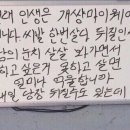 내 인생은 개썅마이웨이
니까 씨발 한번살다 뒤질인생
남의 눈치 살살 봐가면서
하고 싶은거 못하고 살면
얼마나 억울합니까
내일 당장 뒤질수도 있는데